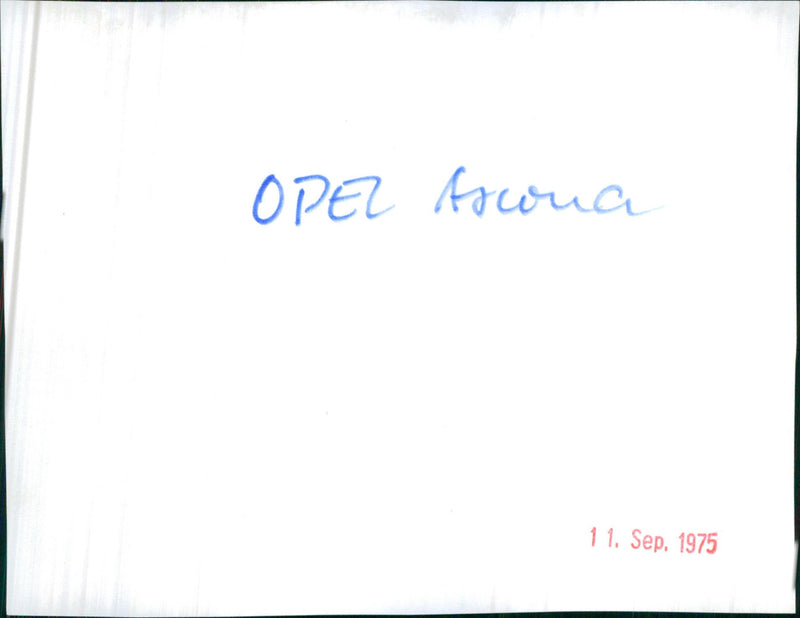 OPEL Ascona
11. Sep. 1975